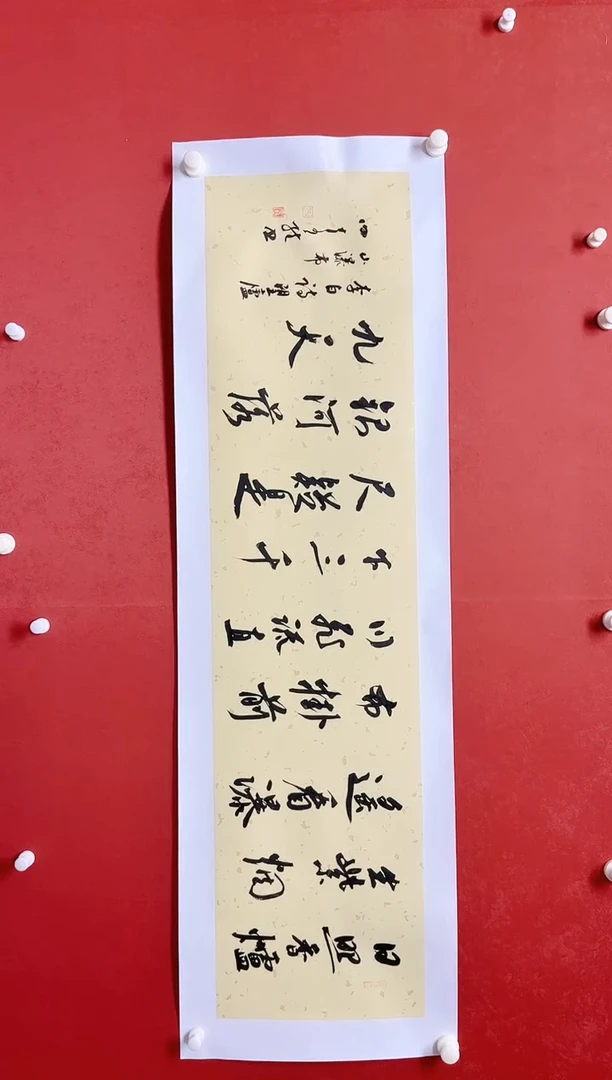 日照香爐
生紫烟
遥看瀑
布掛前
川飛流直
下三千
尺疑是
銀河落
九天
李白詩望廬
山瀑布